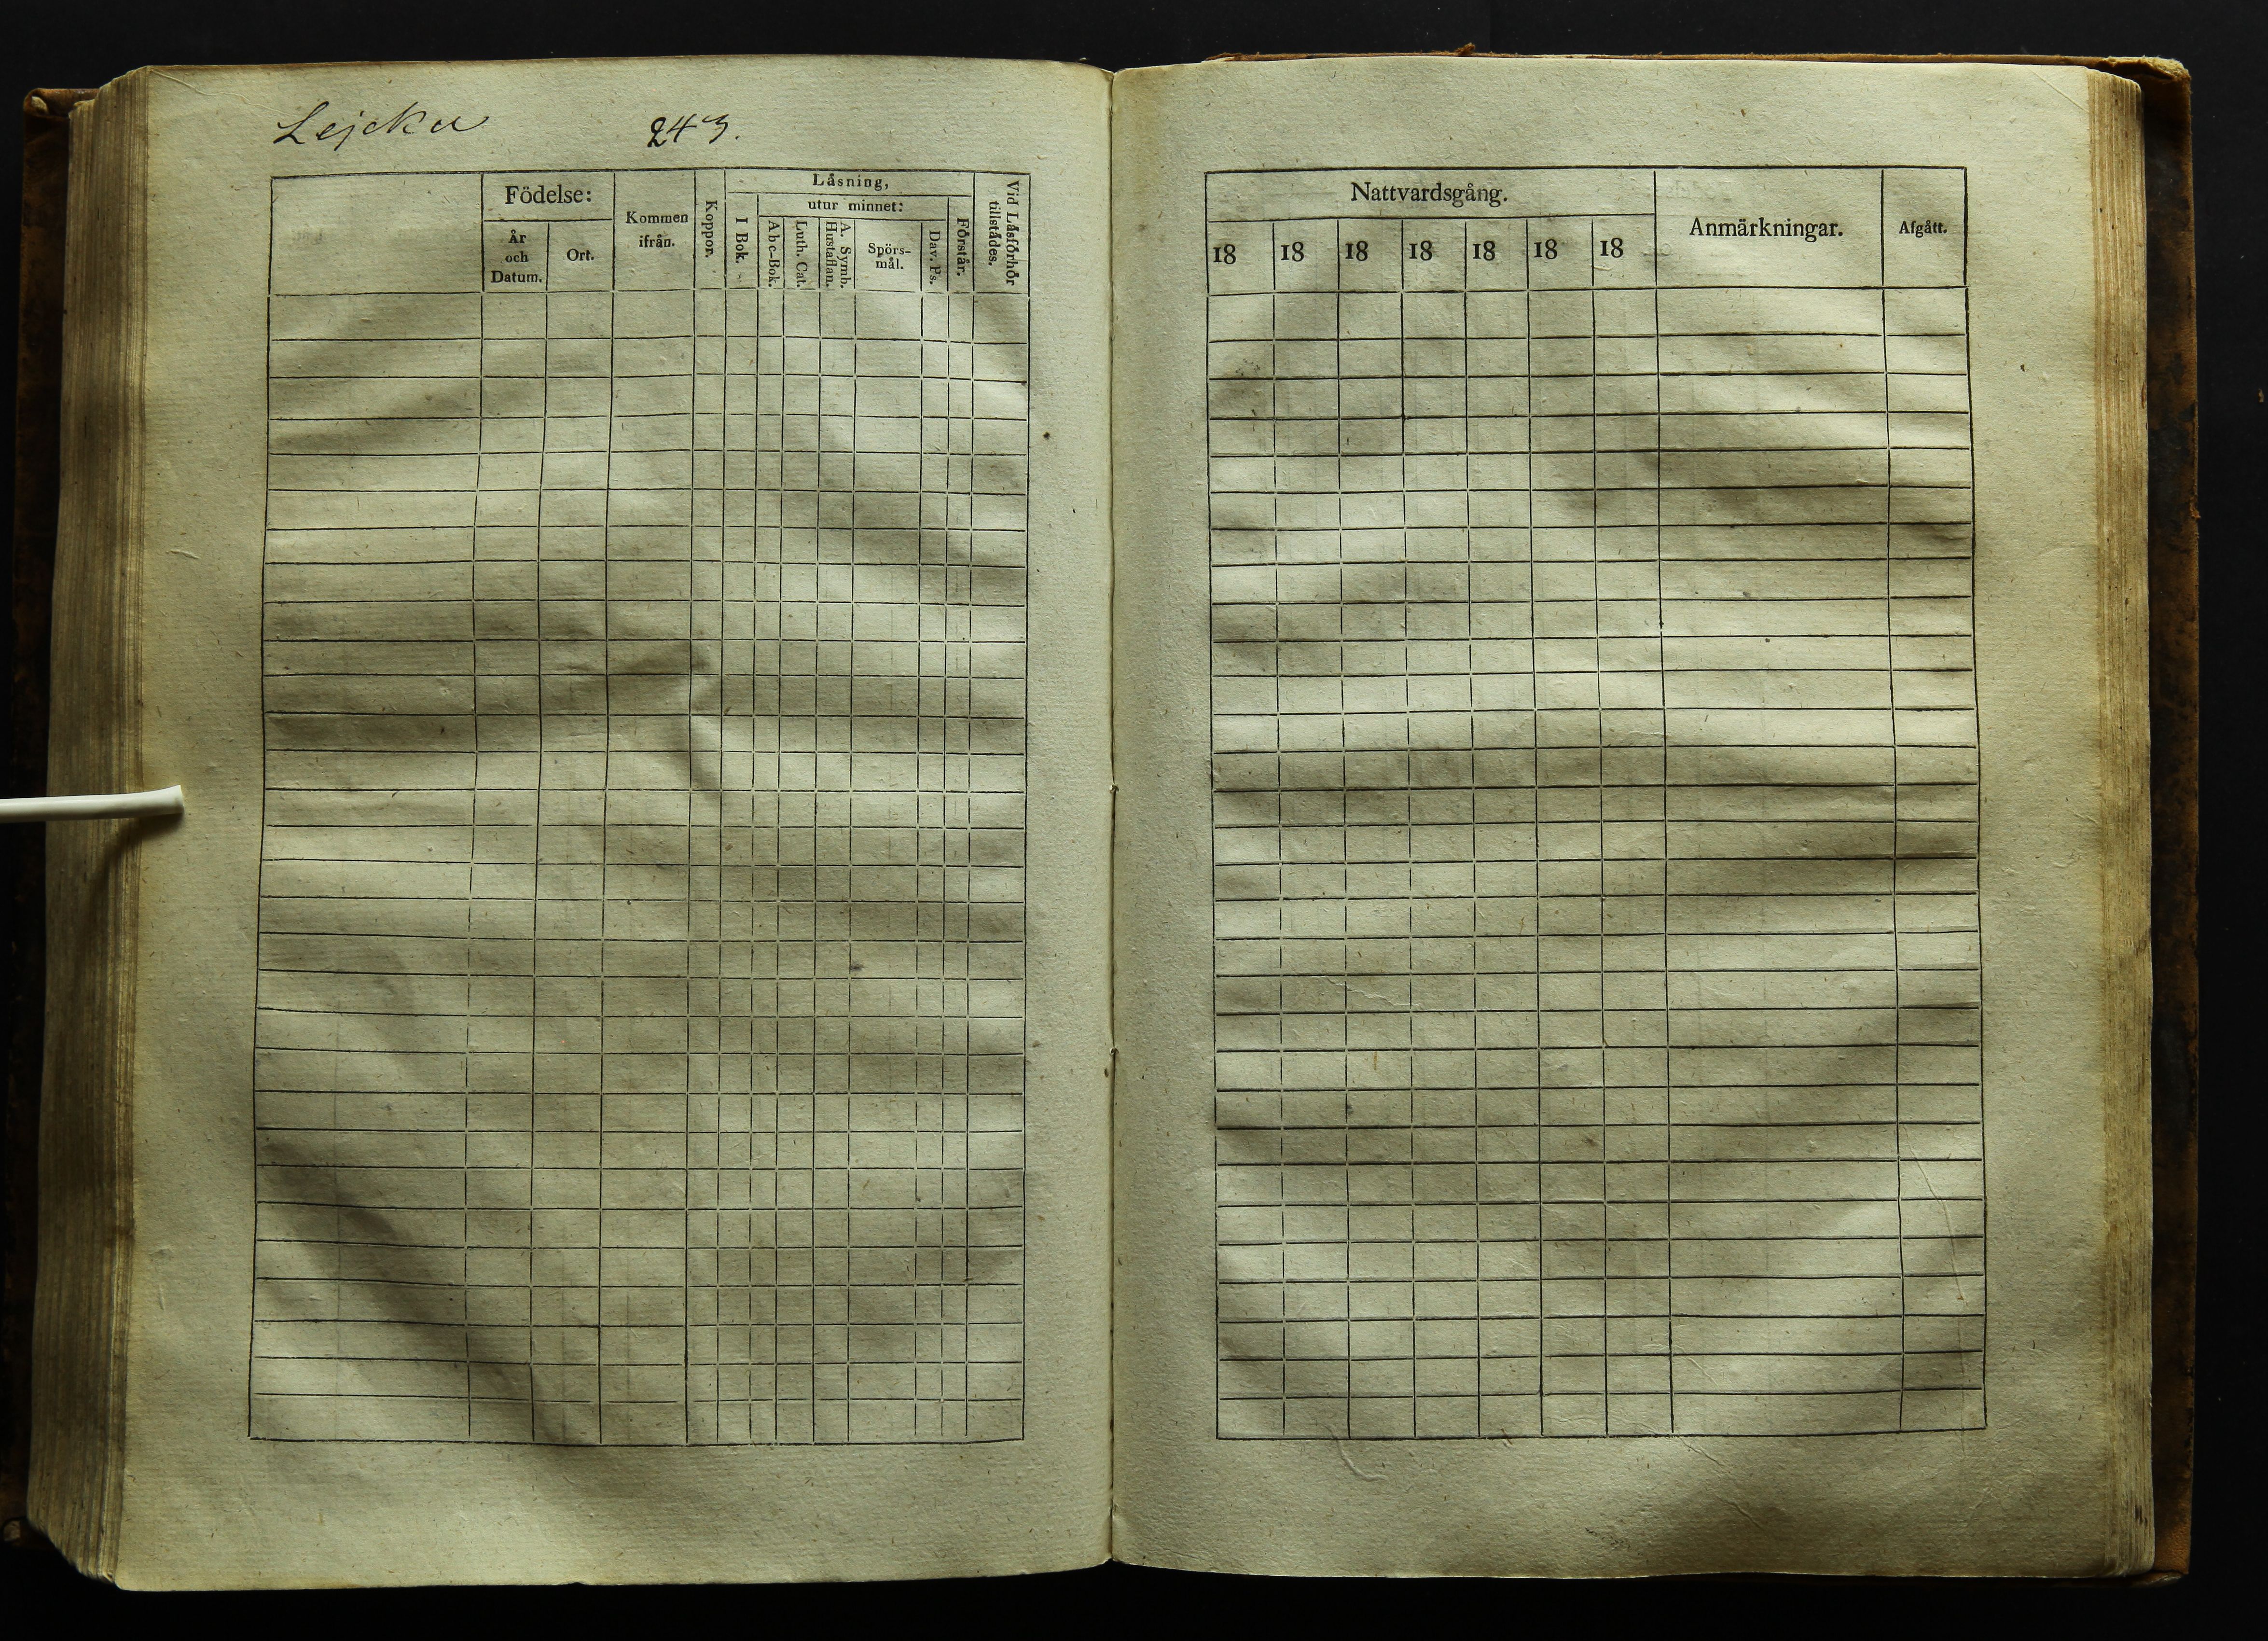 Lejcku 243.
Födelse:
År och Datum.
Ort.
Kommen ifrån.
Koppor.
Låsning,
I Bok.
utur minnet:
Abc-Bok.
Luth. Cat.
A. Symb. Hustaflan.
Spörs-
mål.
Dav. Ps.
Förstår.
Vid Låsförhör tillstådes.
Nattvardsgång.
18 18 18 18 18 18 18
Anmärkningar.
Afgått.